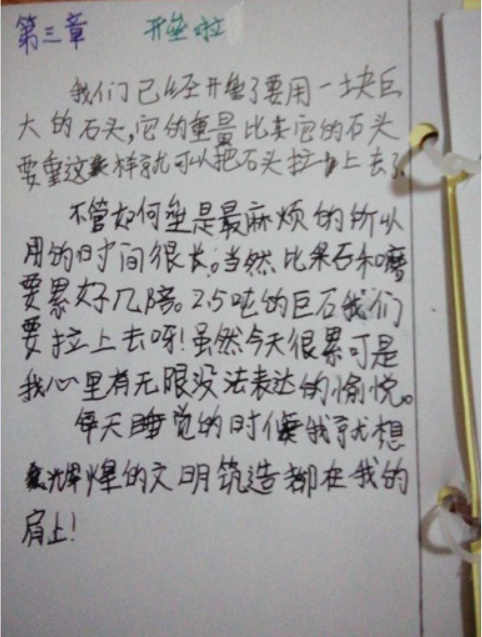 第三章 开垒啦
我们已经开垒了要用一块巨
大的石头,它的重量比其它的石头
要重这样就可以把石头拉上去了.
不管如何垒是最麻烦的所以
用的时间很长。当然比采石和磨
要累好几陪。2.5吨的巨石我们
要拉上去呀!虽然今天很累可是
我心里有无限没法表达的愉悦。
每天睡觉的时候我就想
辉煌的文明筑造都在我的
肩上!